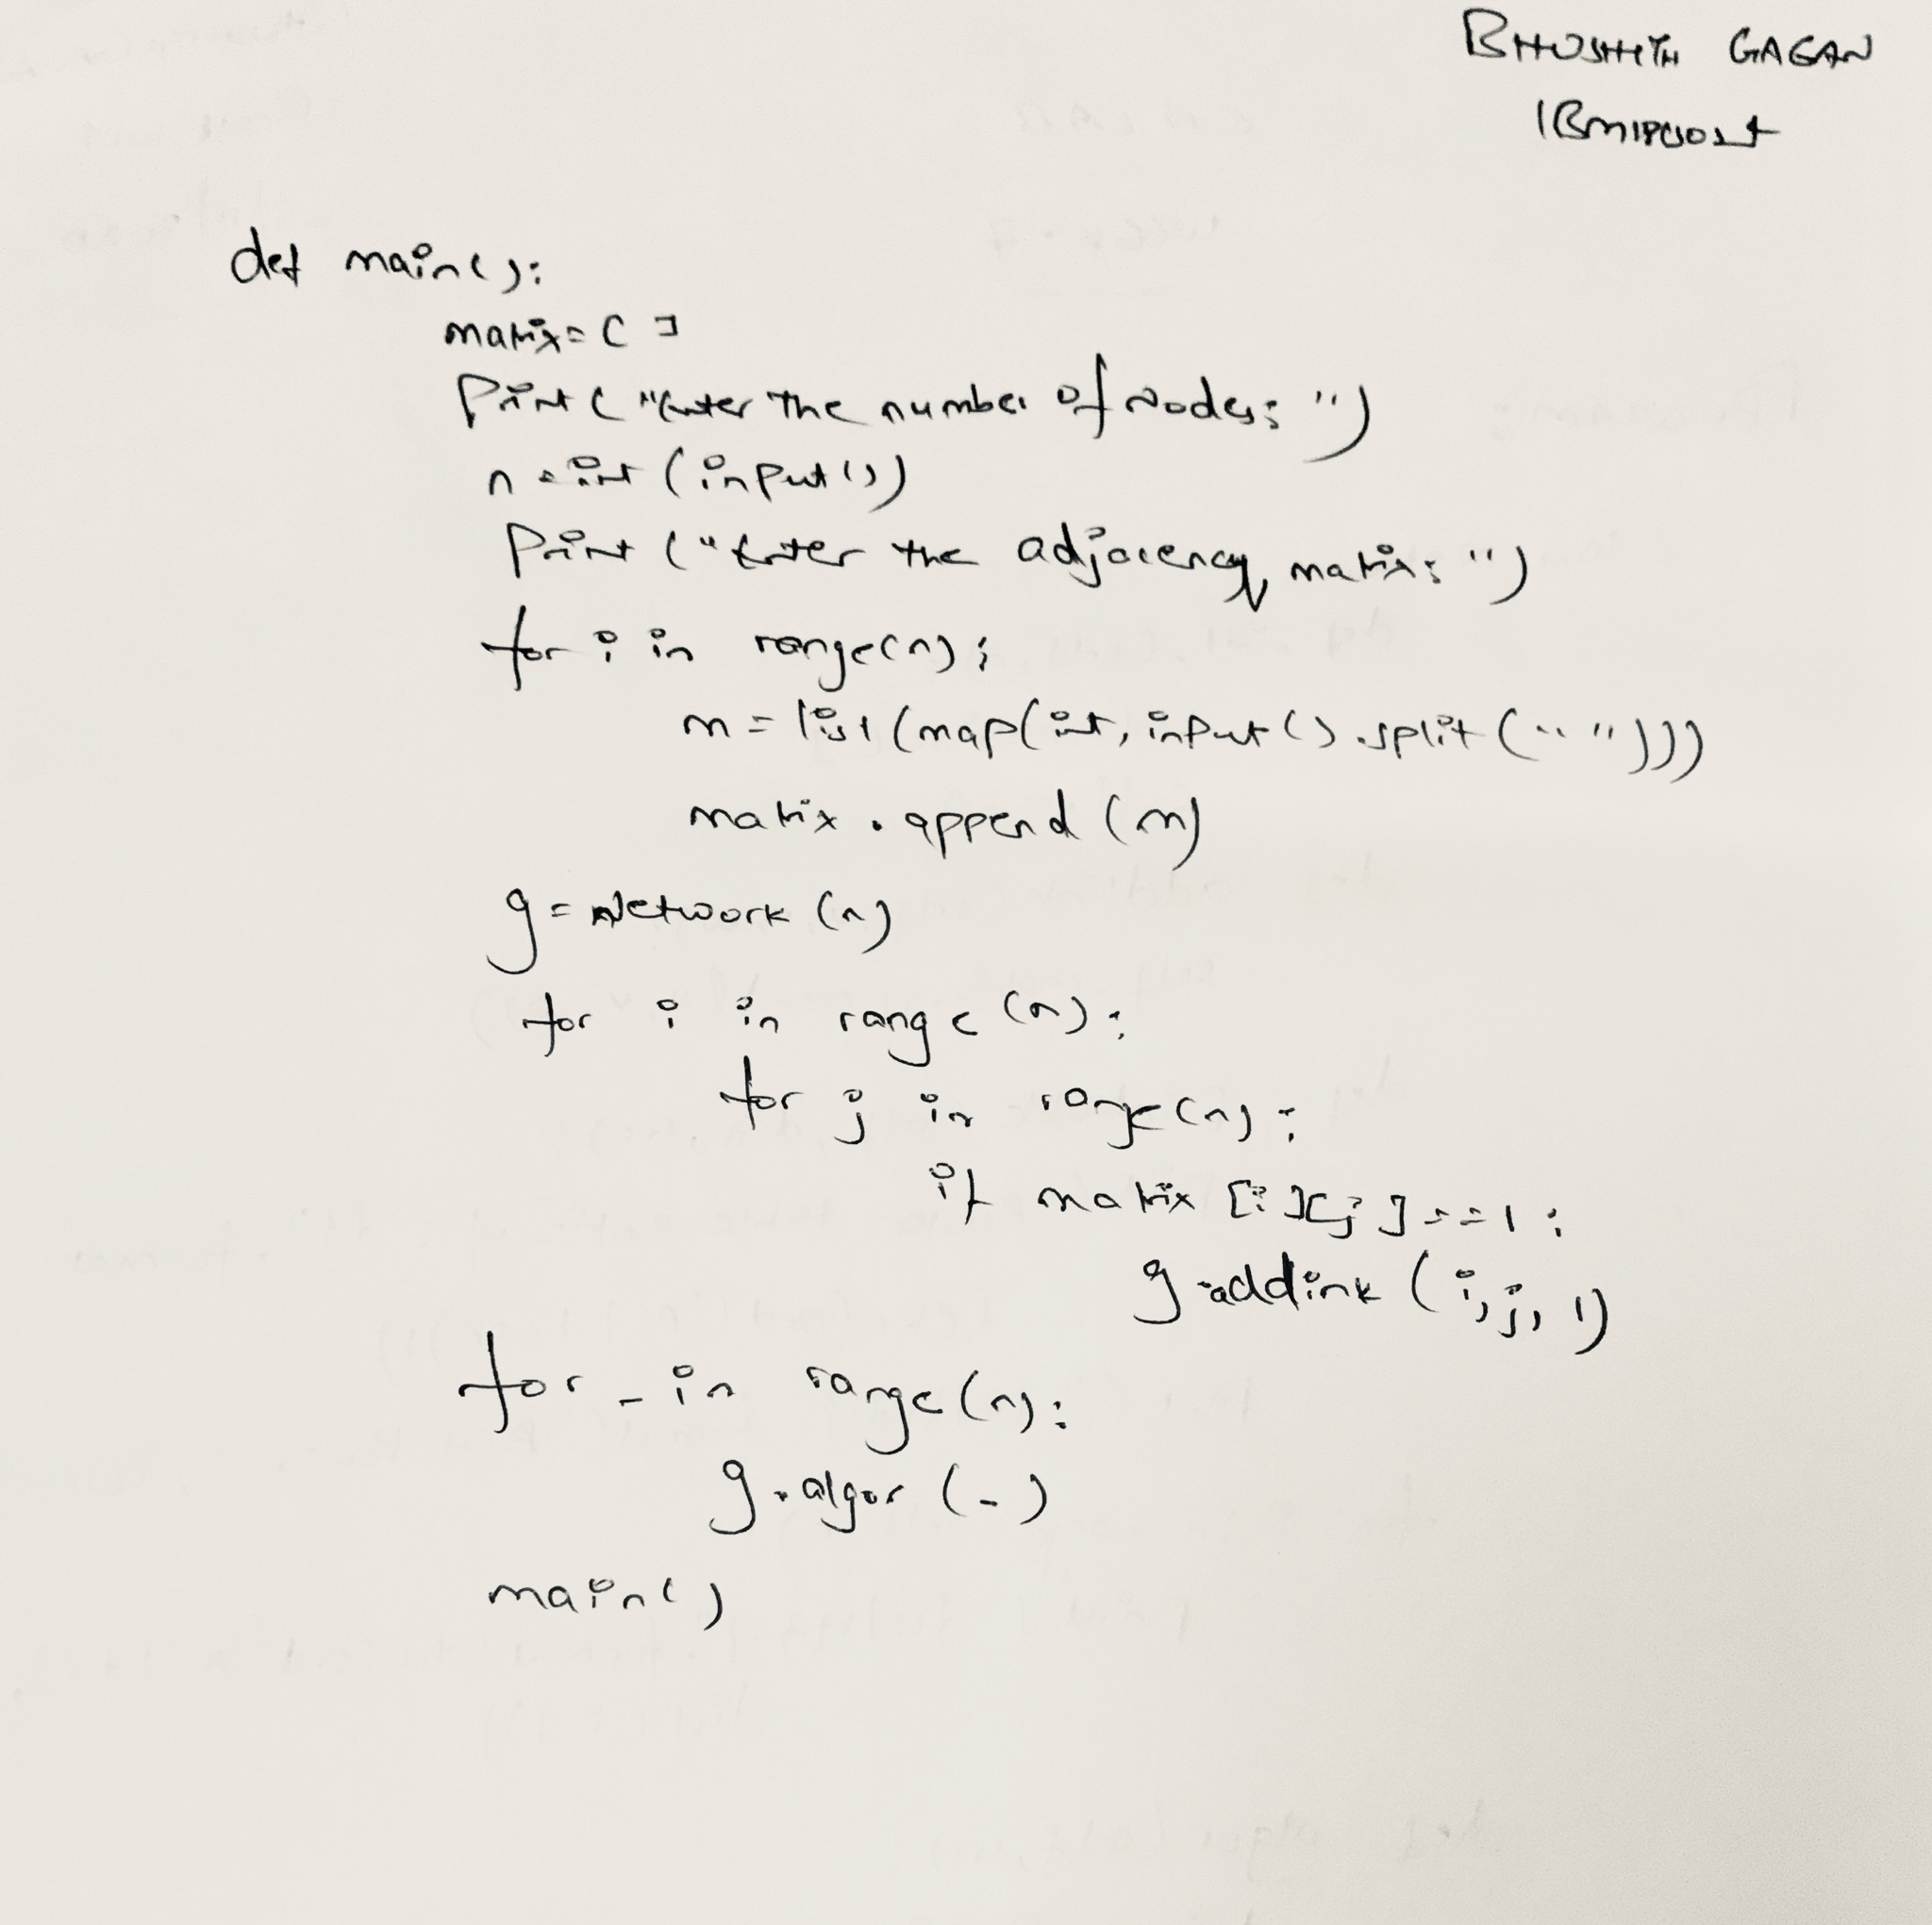 BHUSHITH GAGAN
def main():
matrix=[ ]
Print ("Enter the number of nodes: ")
n = int (input())
Print ("Enter the adjacency matrix: ")
for i in range(n):
m = list (map(int, input().split(" ")))
matrix.append (m)
g = Network (n)
for i in range (n):
for j in range(n):
if matrix [i][j]==1:
g.addink (i,j, 1)
for _ in range(n):
g.algor (_)
main()